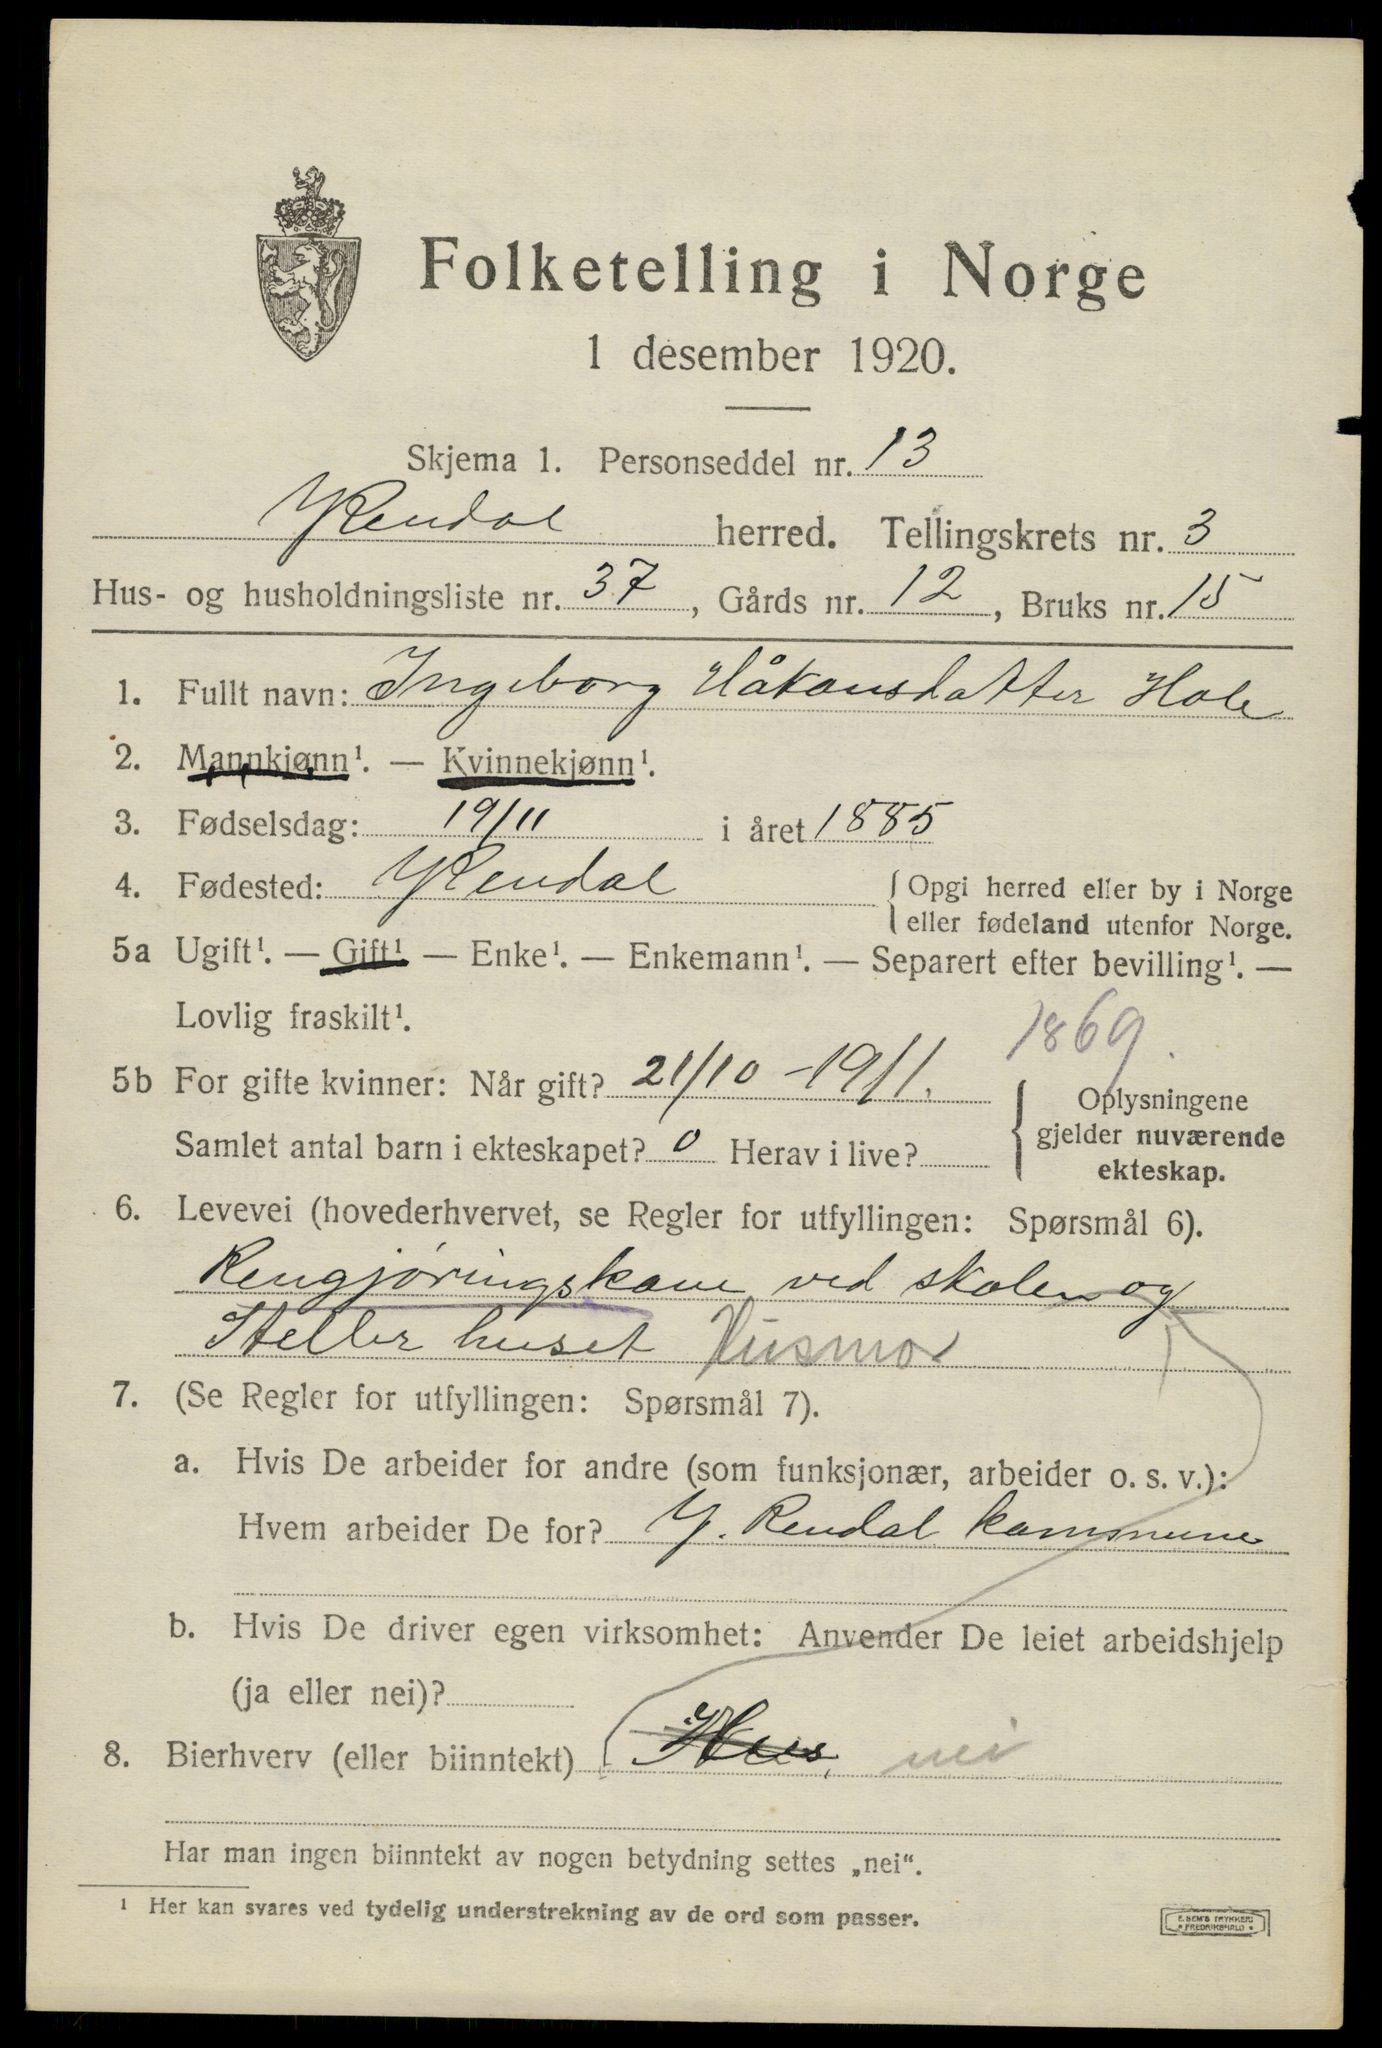 Folketelling i Norge
1 desember 1920.
Skjema 1. Personseddel nr. 13
Y Rendal herred. Tellingskrets nr. 3
Hus- og husholdningsliste nr. 37, Gårds nr. 12, Bruks nr. 15
1. Fullt navn: Ingeborg Håkonsdatter Hole
2. Mannkjønn¹. — Kvinnekjønn¹.
3. Fødselsdag: 19/11 i året 1885
4. Fødested: Y Rendal {Opgi herred eller by i Norge
eller fødeland utenfor Norge.
5a Ugift¹. — Gift¹ — Enke¹. — Enkemann¹. — Separert efter bevilling¹. —
Lovlig fraskilt¹.
1869.
5b For gifte kvinner: Når gift? 21/10 - 1911. { Oplysningene
gjelder nuværende
Samlet antal barn i ekteskapet? 0 Herav i live?
ekteskap.
6. Levevei (hovederhvervet, se Regler for utfyllingen: Spørsmål 6).
Rengjøringskone ved skolen og
Steller huset Husmor
7. (Se Regler for utfyllingen: Spørsmål 7).
a. Hvis De arbeider for andre (som funksjonær, arbeider o. s. v.):
Hvem arbeider De for? Y. Rendal kommune
b. Hvis De driver egen virksomhet: Anvender De leiet arbeidshjelp
(ja eller nei)?
8. Bierhverv (eller biinntekt) Hus, nei
Har man ingen biinntekt av nogen betydning settes „nei“.
¹ Her kan svares ved tydelig understrekning av de ord som passer.
E. SEM'S TRYKKERI
FREDRIKSHALD